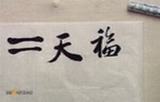 福天二